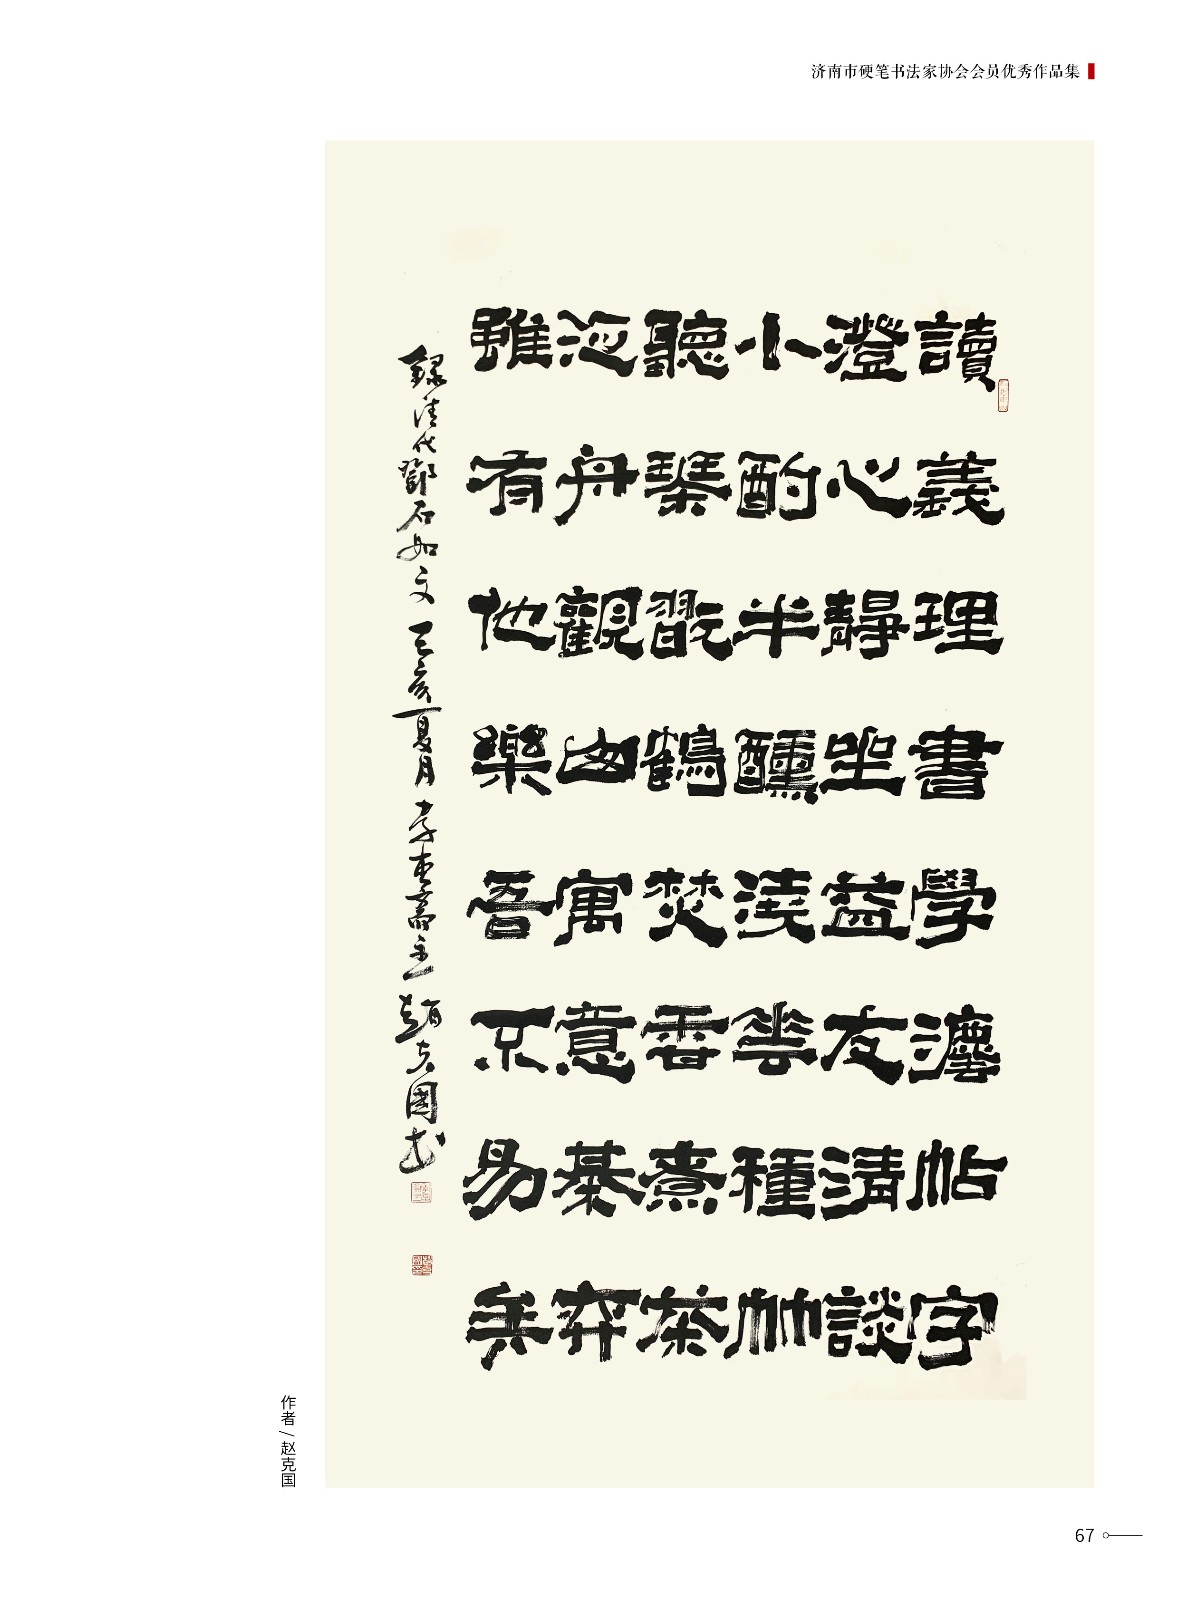 济南市硬笔书法家协会会员优秀作品集
讀義理書學灋帖字
澄心靜坐益友清談
小酌半醺澆華種竹
聽琴翫鶴焚香煮茶
泛舟觀山寓意棊弈
雖有他樂吾不易矣
錄清代鄧石如文 己亥夏月 孝本齋主 趙克國書
作者/赵克国
67